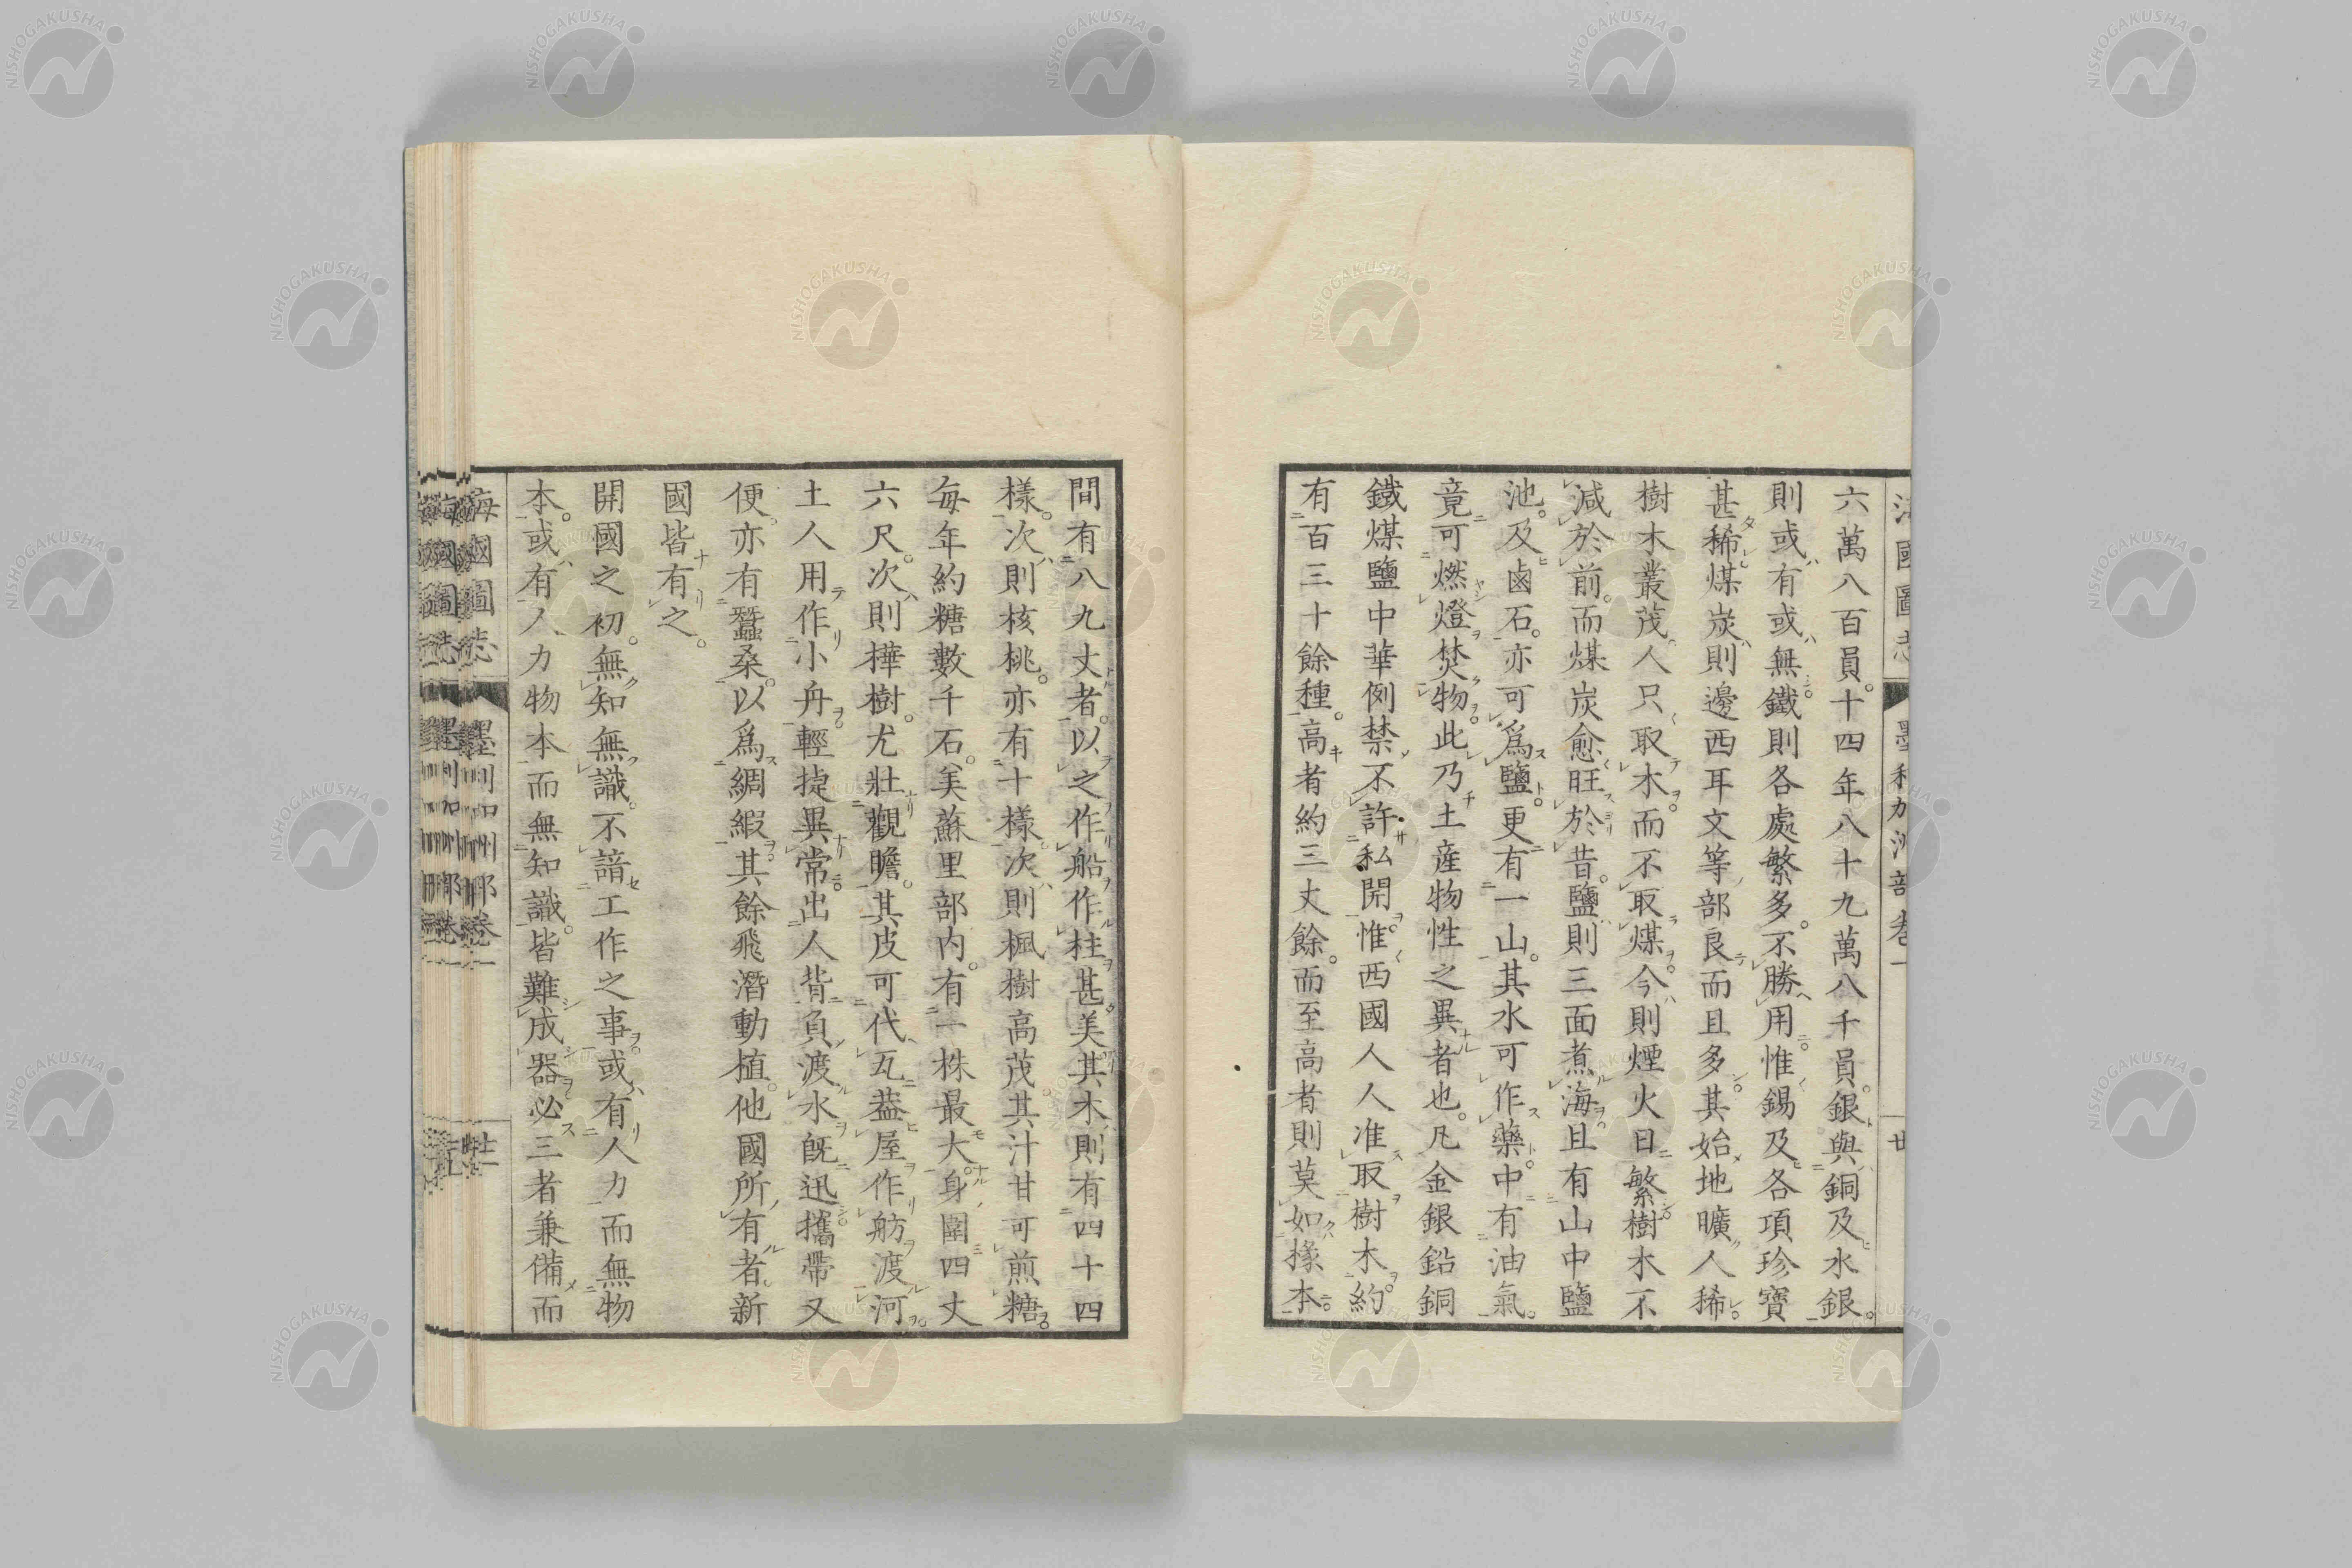 六萬八百員。十四年八十九萬八千員。銀與銅及水銀。
則或有或無。鐵則各處繁多。不勝用。惟錫及各項珍寶
甚稀。煤炭則邊西耳文等部良而且多。其始地曠人稀。
樹木叢茂。人只取木而不取煤。今則煙火日繁。樹木不
減於前。而煤炭愈旺於昔。鹽則三面煮海。且有山中鹽
池。及鹵石。亦可爲鹽。更有一山。其水可作藥。中有油氣。
竟可燃燈焚物。此乃土產物性之異者也。凡金銀鉛銅
鐵煤鹽中華例禁不許私開。惟西國人人准取樹木。約
有百三十餘種。高者約三丈餘。而至高者則莫如橡本。
間有八九丈者。以之作船作柱甚美。其木則有四十四
樣。次則核桃。亦有十樣。次則楓樹高茂。其汁甘可煎糖。
每年約糖數千石。美蘇里部內。有一株最大。身圍四丈
六尺。次則樺樹。尤壯觀瞻。其皮可代瓦葢屋作舫渡河。
土人用作小舟。輕捷異常。出人背負。渡水旣迅。攜帶又
便。亦有蠶桑。以爲綢緞。其餘飛潛動植。他國所有者。新
國皆有之。
開國之初。無知無識。不諳工作之事。或有人力而無物
本。或有人力物本而無知識。皆難成器。必三者兼備而
海國圖志
墨利加洲部卷一
廿
NISHOGAKUSHA